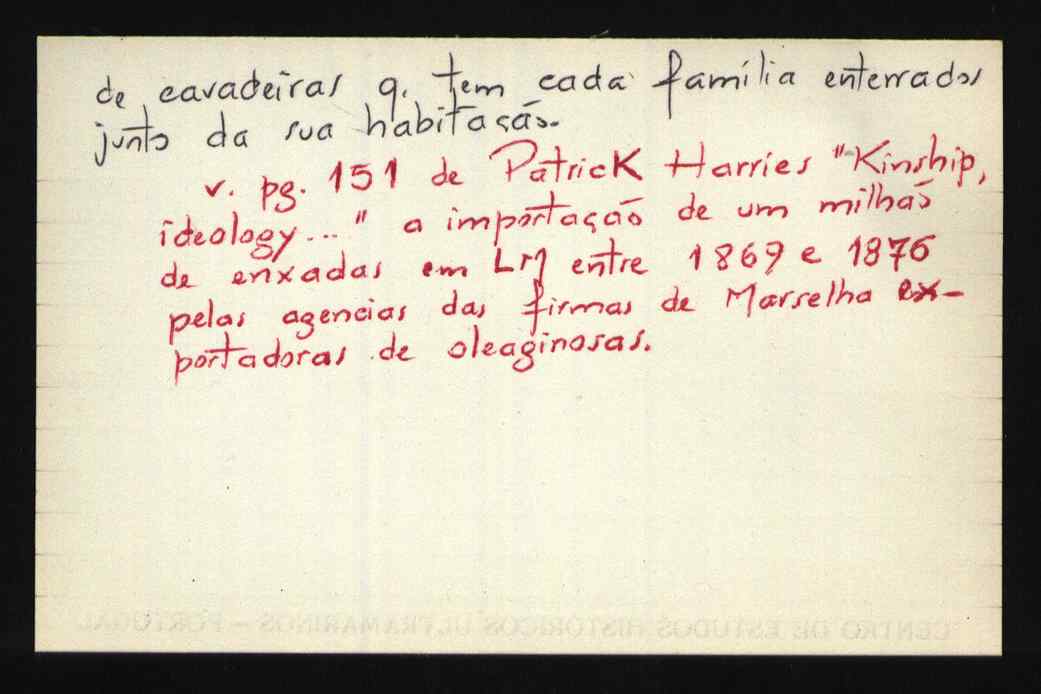 de cavadeiras q. tem cada família enterrados
junto da sua habitação.
v. pg. 151 de Patrick Harries "Kinship,
ideology..." a importação de um milhão
de enxadas em LM entre 1869 e 1876
pelas agencias das firmas de Marselha ex-
portadoras de oleaginosas.
CENTRO DE ESTUDOS HISTÓRICOS ULTRAMARINOS – PORTUGAL